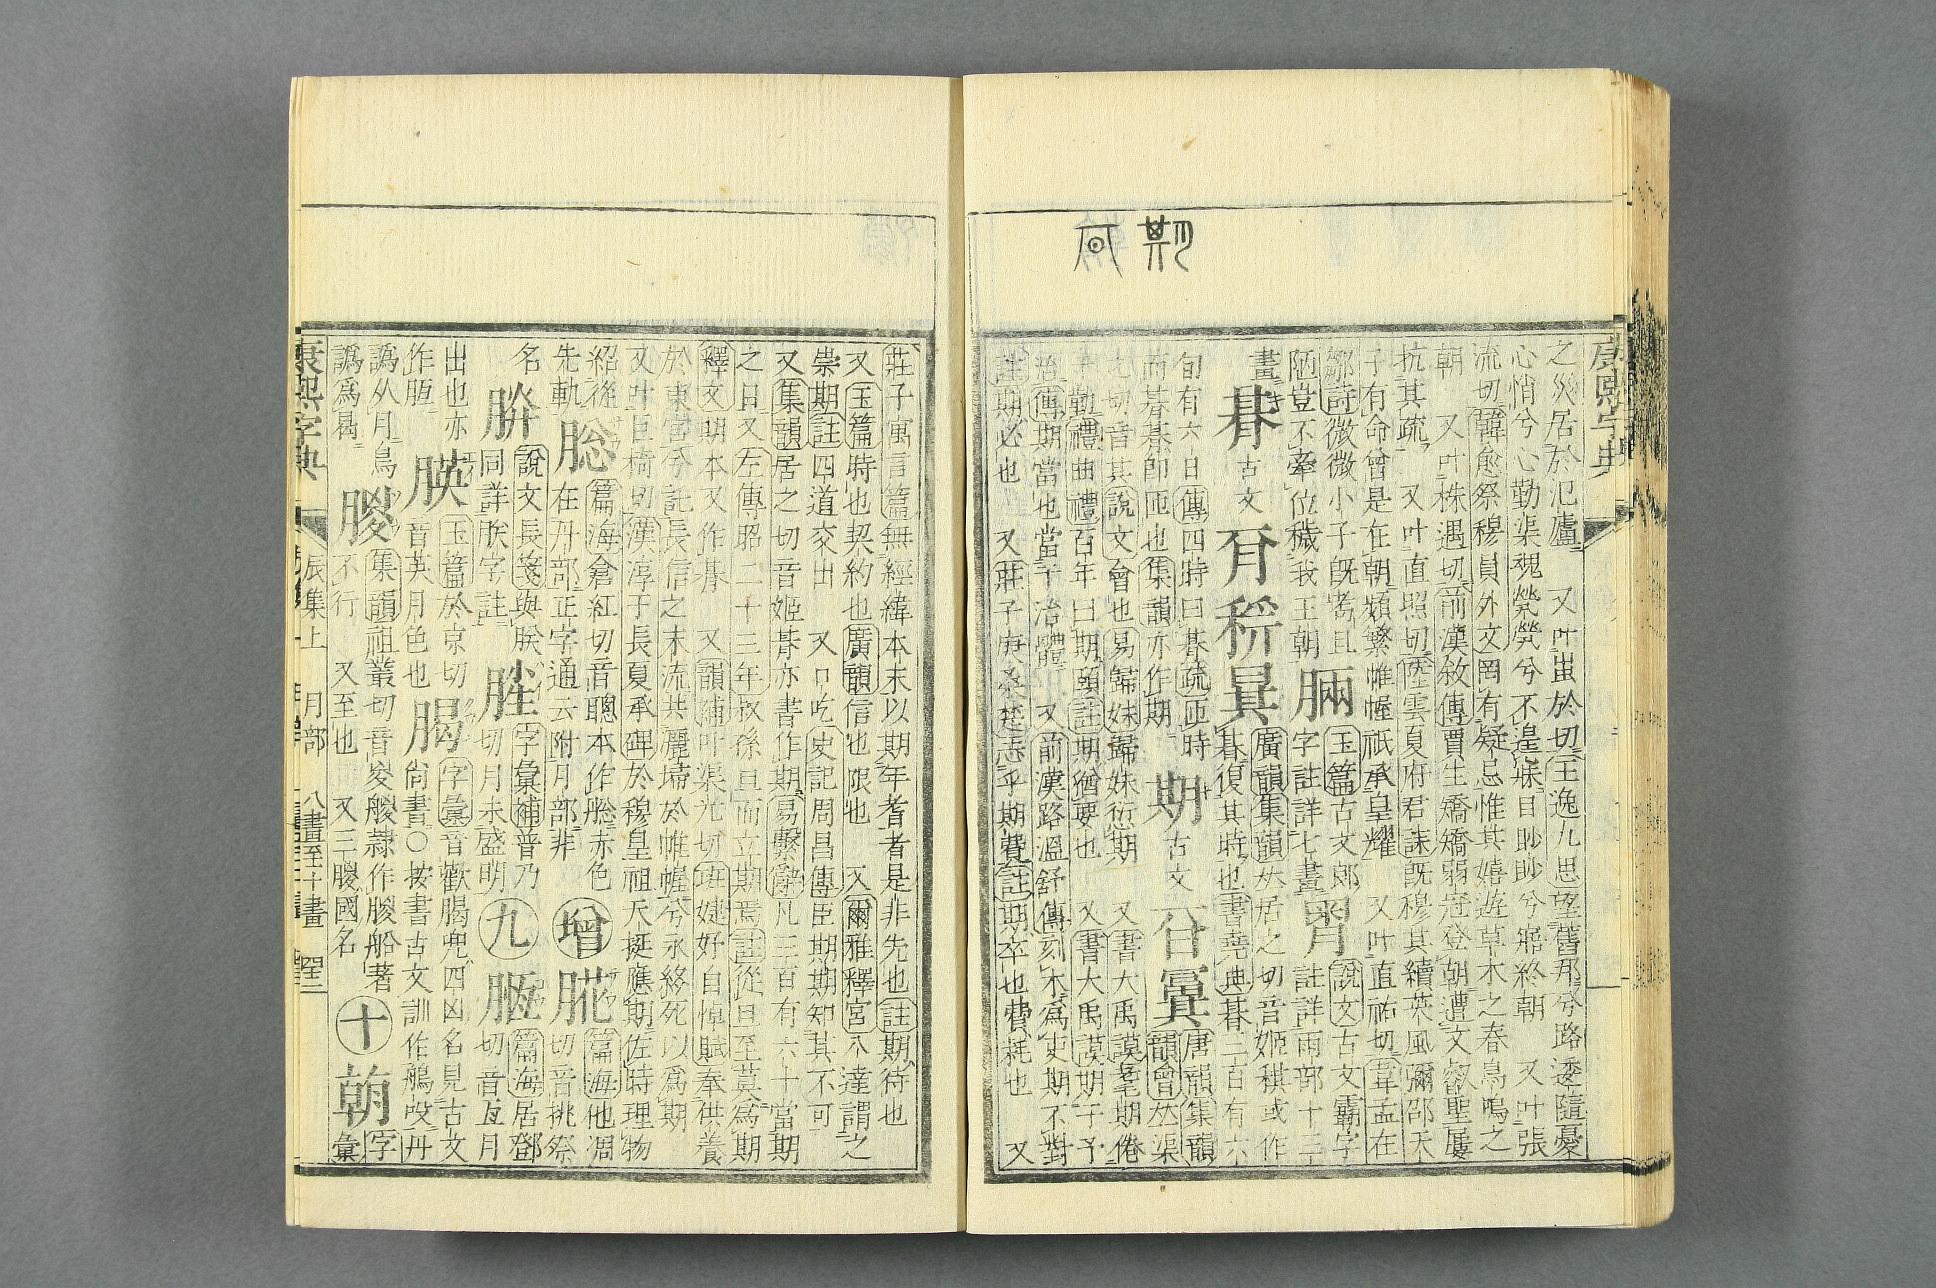 期
康熙字典
之災居於氾廬 又叶蚩於切王逸九思望舊邦兮路逶隨憂
心悄兮心勤渠魂煢煢兮不遑寐目眇眇兮寤終朝 又叶張
流切韓愈祭穆員外文罔有疑忌惟其嬉遊草木之春鳥鳴之
朝 又叶株遇切前漢敘傳賈生矯矯弱冠登朝遭文叡聖屢
抗其疏 又叶直照切陸雲夏府君誄旣穆其續英風彌邵天
子有命曾是在朝頻繁帷幄祇承皇耀 又叶直祐切韋孟在
鄒詩微微小子旣耇且陋豈不牽位穢我王朝
脼玉篇古文郎字註詳七畫
⺼說文古文霸字註詳雨部十三畫
朞古文 稘朞廣韻集韻𠀤居之切音姬稘或作
朞復其時也書堯典朞三百有六
旬有六日傳四時曰朞疏匝時
而朞朞卽匝也集韻亦作期
期古文 唐韻集韻
韻會𠀤渠
之切音其說文會也易歸妹歸妹愆期 又書大禹謨耄期倦
于勤禮曲禮百年曰期頤註期猶要也 又書大禹謨期于予
治傳期當也當于治體 又前漢路溫舒傳刻木爲吏期不對
註期必也 又莊子庚桑楚志乎期費註期卒也費耗也 又
莊子寓言篇無經緯本末以期年耆者是非先也註期待也
又玉篇時也契約也廣韻信也限也 又爾雅釋宮八達謂之
崇期註四道交出 又口吃史記周昌傳臣期期知其不可
又集韻居之切音姬朞亦書作期易繫辭凡三百有六十當期
之日又左傳昭二十三年叔孫旦而立期焉註從旦至莫爲期
釋文期本又作朞 又韻補叶渠尤切班婕妤自悼賦奉供養
於東宮兮託長信之末流共灑埽於帷幄兮永終死以爲期
又叶巨椅切漢淳于長夏承碑於穆皇祖天挺應期佐時理物
紹從先軌
篇海倉紅切音聰本作䏁赤色
在丹部正字通云附月部非
增
篇海他凋
切音挑祭
名
說文長箋與朕
同詳朕字註
字彙補普乃
切月未盛明
九
篇海居鄧
切音亙月
出也亦
作𣍃
朠玉篇於京切
音英月色也
字彙音歡朅兜四凶名見古文
尙書○按書古文訓作鵃吺丹
譌从月鳥
譌爲曷
朡集韻祖叢切音㚇艐隷作朡船著
不行 又至也 又三朡國名
十
字
彙
康熙字典
辰集上 月部 八畫至十畫